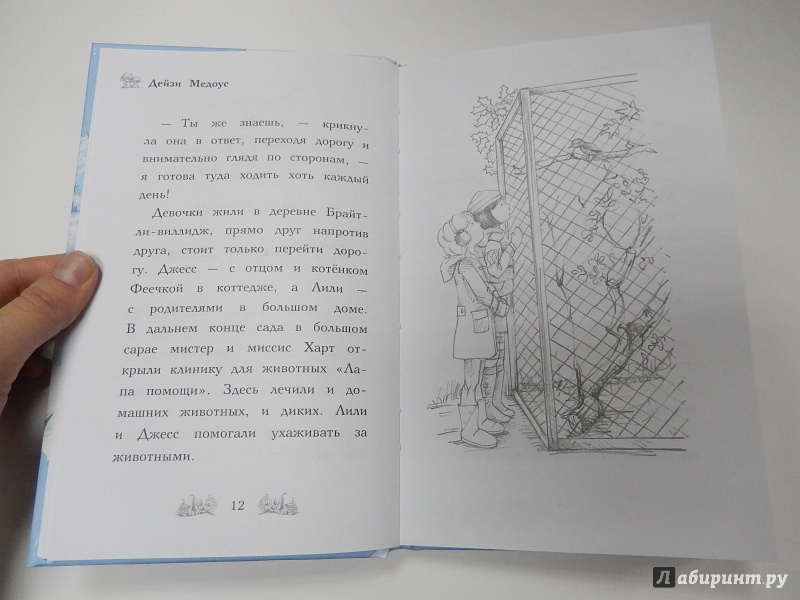 Дейзи Медоус
— Ты же знаешь, — крикну-
ла она в ответ, переходя дорогу и
внимательно глядя по сторонам, —
я готова туда ходить хоть каждый
день!
Девочки жили в деревне Брайт-
ли-виллидж, прямо друг напротив
друга, стоит только перейти доро-
гу. Джесс — с отцом и котёнком
Феечкой в коттедже, а Лили —
с родителями в большом доме.
В дальнем конце сада в большом
сарае мистер и миссис Харт от-
крыли клинику для животных «Ла-
па помощи». Здесь лечили и до-
машних животных, и диких. Лили
и Джесс помогали ухаживать за
животными.
12
Лабиринт.ру